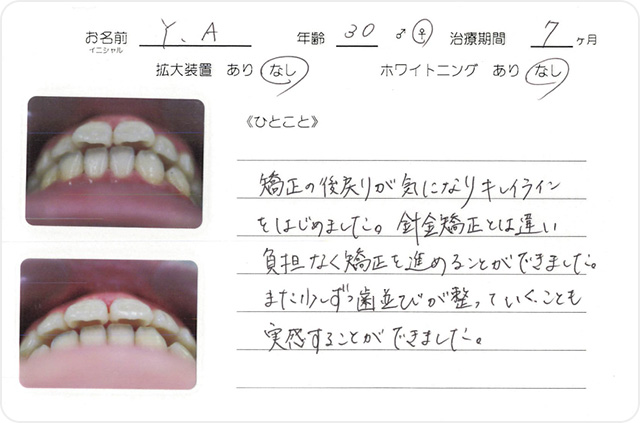 お名前 Y、A 年齢 30 ♂ ♀ 治療期間 7 ヶ月
イニシャル
拡大装置 あり なし ホワイトニング あり なし
《ひとこと》
矯正の後戻りが気になりキレイライン
をはじめました。針金矯正とは違い
負担なく矯正を進めることができました。
また少しずつ歯並びが整っていくことも
実感することができました。